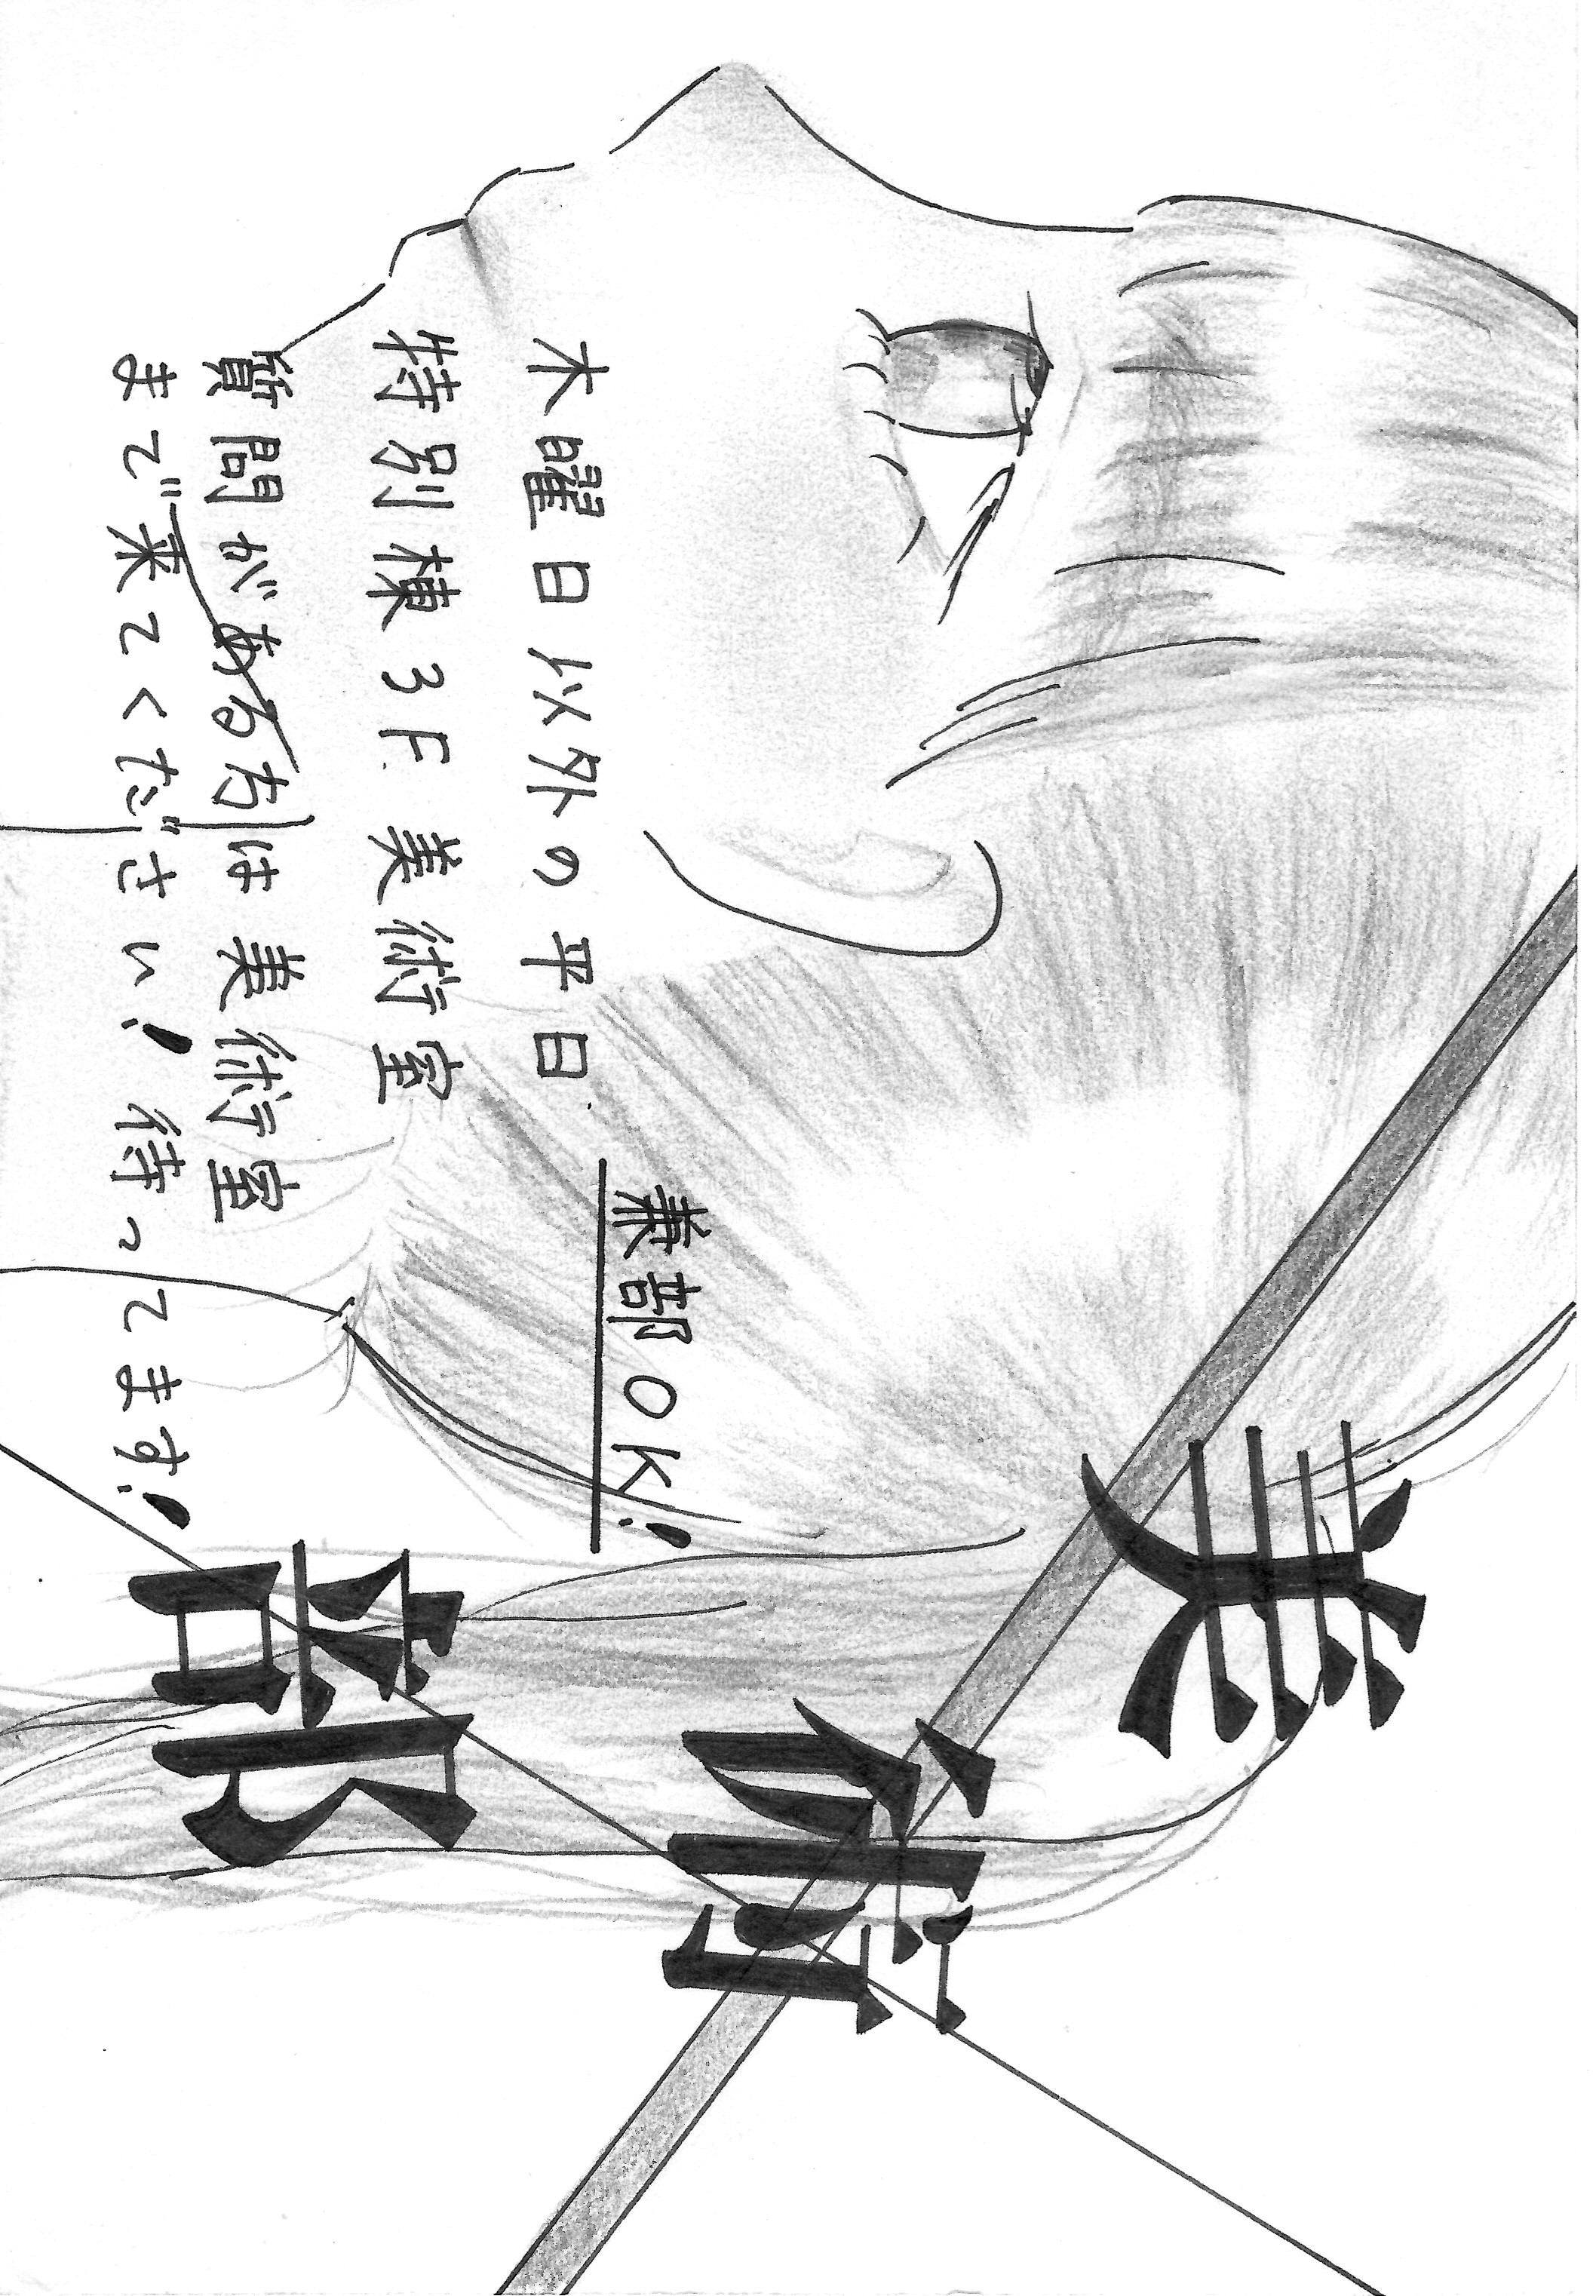 美術部
兼部OK!
木曜日以外の平日
特別棟3F 美術室
質問がある方は美術室
まで来てください!待ってます!